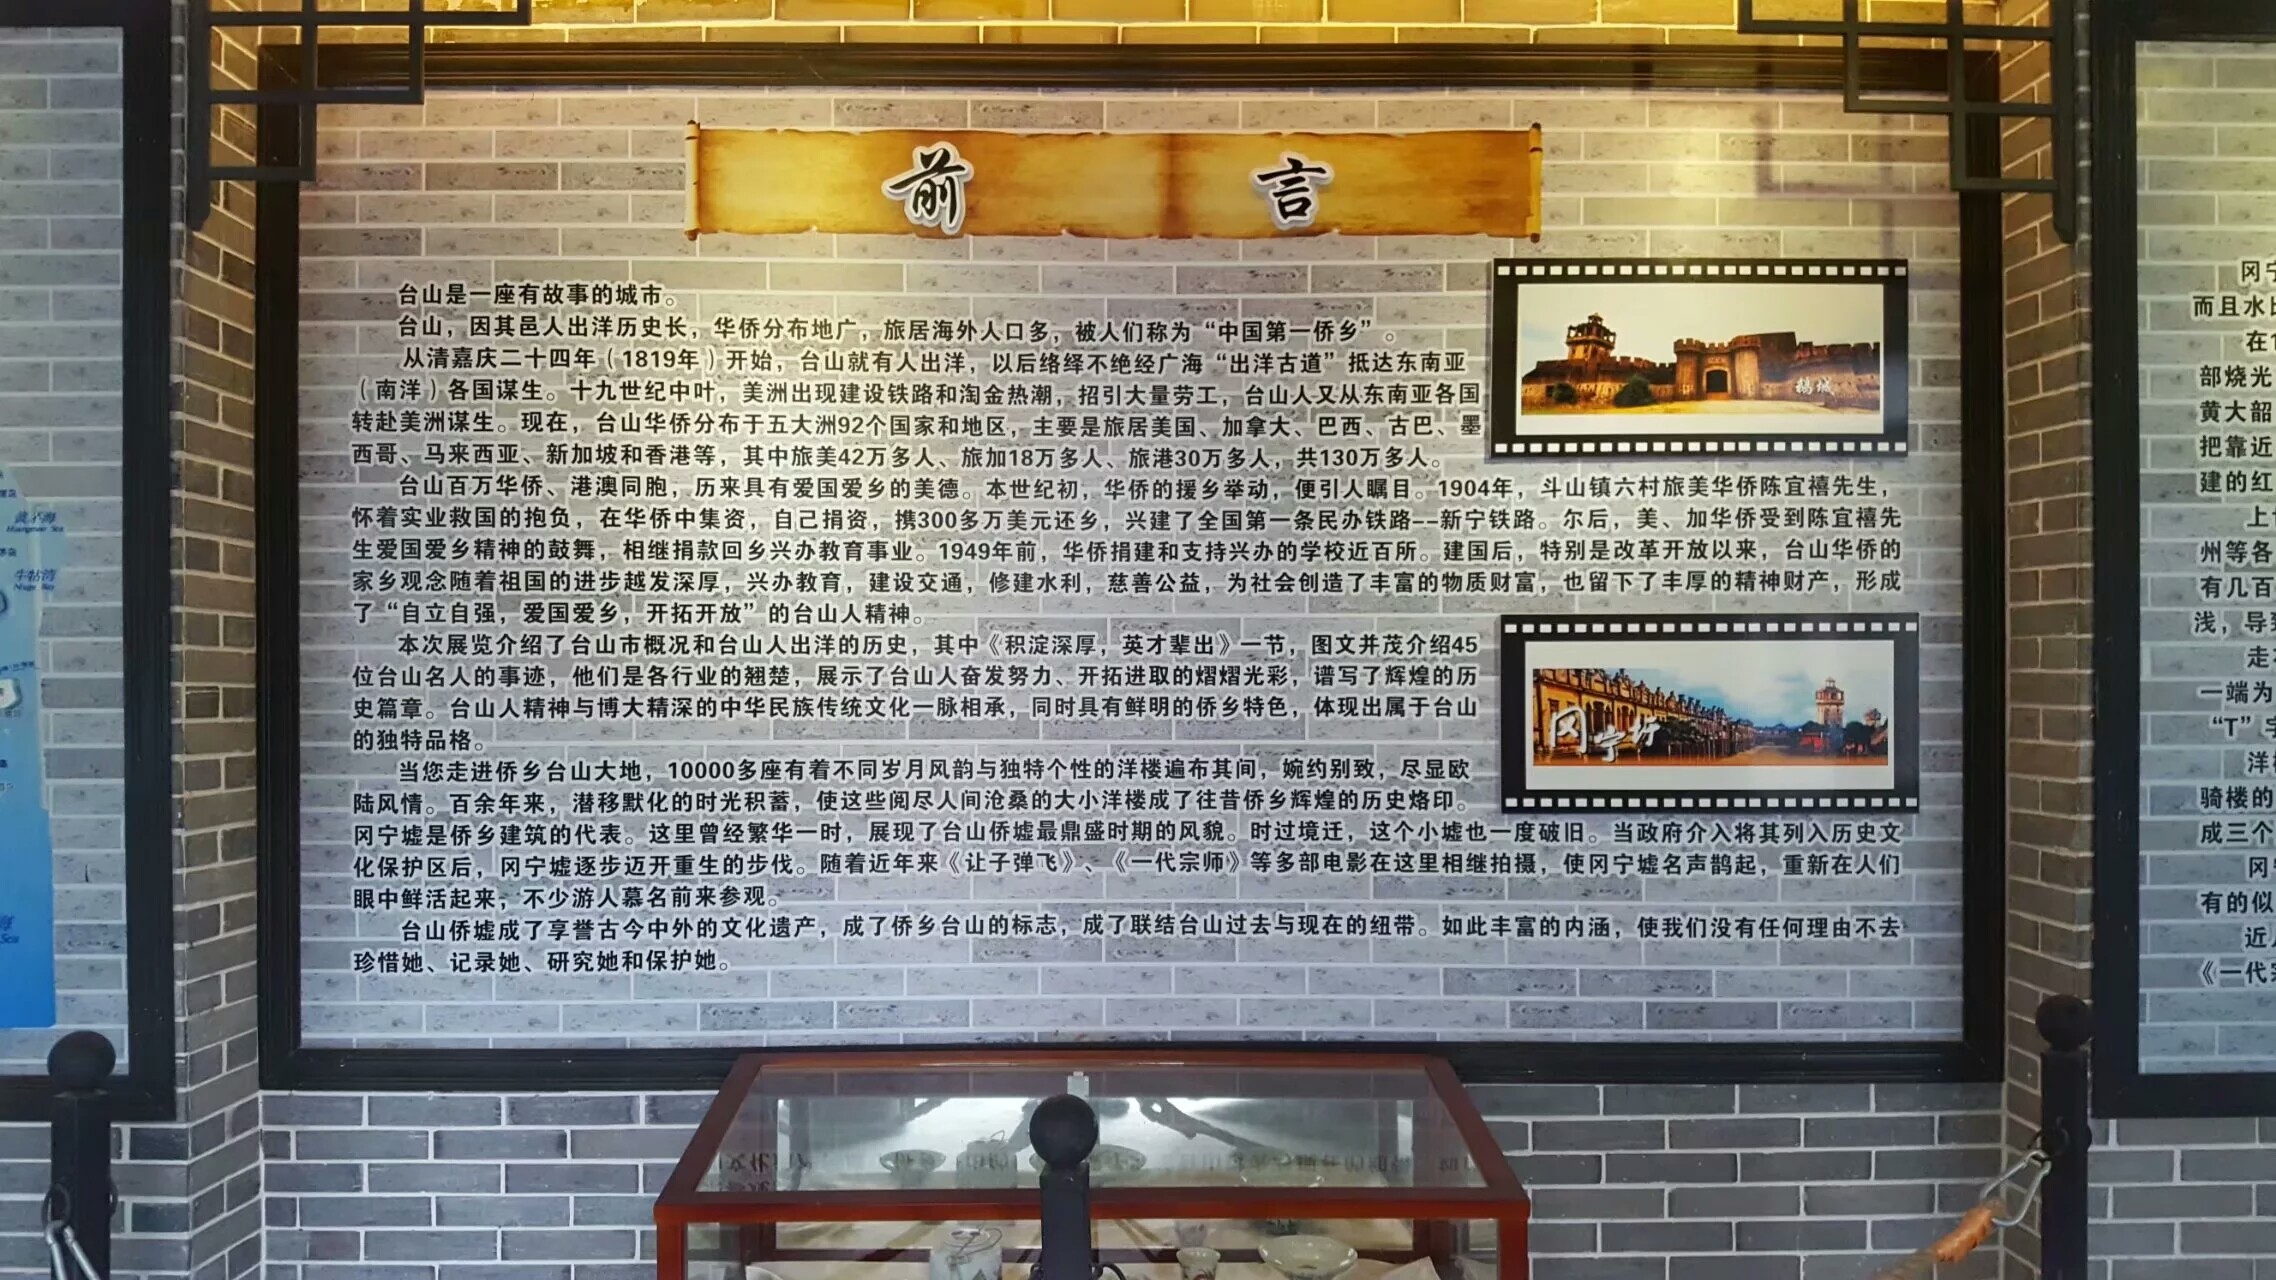 前言
台山是一座有故事的城市。
台山，因其邑人出洋历史长，华侨分布地广，旅居海外人口多，被人们称为“中国第一侨乡”。
从清嘉庆二十四年（1819年）开始，台山就有人出洋，以后络绎不绝经广海“出洋古道”抵达东南亚
（南洋）各国谋生。十九世纪中叶，美洲出现建设铁路和淘金热潮，招引大量劳工，台山人又从东南亚各国
转赴美洲谋生。现在，台山华侨分布于五大洲92个国家和地区，主要是旅居美国、加拿大、巴西、古巴、墨
西哥、马来西亚、新加坡和香港等，其中旅美42万多人、旅加18万多人、旅港30万多人，共130万多人。
鹅城
台山百万华侨、港澳同胞，历来具有爱国爱乡的美德。本世纪初，华侨的援乡举动，便引人瞩目。1904年，斗山镇六村旅美华侨陈宜禧先生，
怀着实业救国的抱负，在华侨中集资，自己捐资，携300多万美元还乡，兴建了全国第一条民办铁路--新宁铁路。尔后，美、加华侨受到陈宜禧先
生爱国爱乡精神的鼓舞，相继捐款回乡兴办教育事业。1949年前，华侨捐建和支持兴办的学校近百所。建国后，特别是改革开放以来，台山华侨的
家乡观念随着祖国的进步越发深厚，兴办教育，建设交通，修建水利，慈善公益，为社会创造了丰富的物质财富，也留下了丰厚的精神财产，形成
了“自立自强，爱国爱乡，开拓开放”的台山人精神。
本次展览介绍了台山市概况和台山人出洋的历史，其中《积淀深厚，英才辈出》一节，图文并茂介绍45
位台山名人的事迹，他们是各行业的翘楚，展示了台山人奋发努力、开拓进取的熠熠光彩，谱写了辉煌的历
史篇章。台山人精神与博大精深的中华民族传统文化一脉相承，同时具有鲜明的侨乡特色，体现出属于台山
的独特品格。
冈宁圩
当您走进侨乡台山大地，10000多座有着不同岁月风韵与独特个性的洋楼遍布其间，婉约别致，尽显欧
陆风情。百余年来，潜移默化的时光积蓄，使这些阅尽人间沧桑的大小洋楼成了往昔侨乡辉煌的历史烙印。
冈宁墟是侨乡建筑的代表。这里曾经繁华一时，展现了台山侨墟最鼎盛时期的风貌。时过境迁，这个小墟也一度破旧。当政府介入将其列入历史文
化保护区后，冈宁墟逐步迈开重生的步伐。随着近年来《让子弹飞》、《一代宗师》等多部电影在这里相继拍摄，使冈宁墟名声鹊起，重新在人们
眼中鲜活起来，不少游人慕名前来参观。
台山侨墟成了享誉古今中外的文化遗产，成了侨乡台山的标志，成了联结台山过去与现在的纽带。如此丰富的内涵，使我们没有任何理由不去
珍惜她、记录她、研究她和保护她。
冈宁
而且水
在1
部烧光
黄大韶
把靠近
建的红
上
州等各
有几百
浅，导
走
一端为
“T”字
洋
骑楼的
成三个
冈
有的似
近
《一代